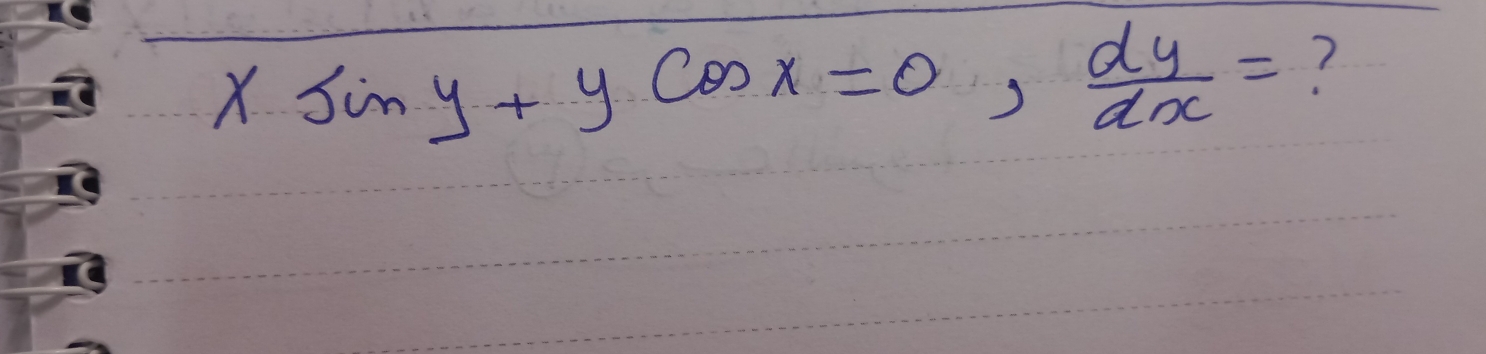 x sin y + y cos x = 0 , dy/dx = ?